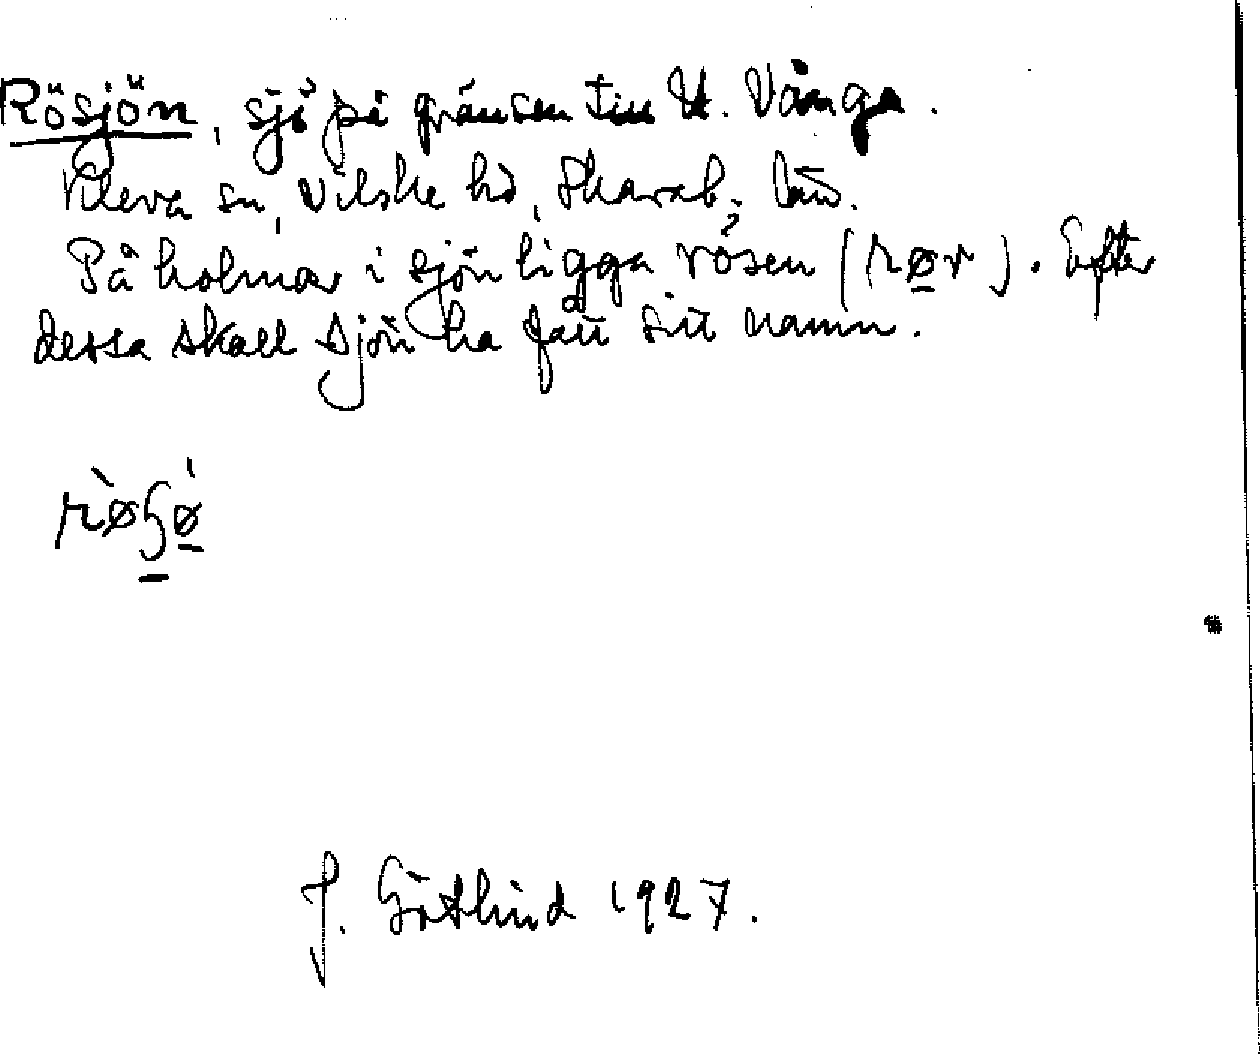 Rösjön, sjö på gränsen till U. Vånga.
Kleva sn, Vilske hd, Skarab. län.
På holmar i sjön ligga rösen (rør). Efter
dessa skall sjön ha fått sitt namn.
J. Götlind 1927.